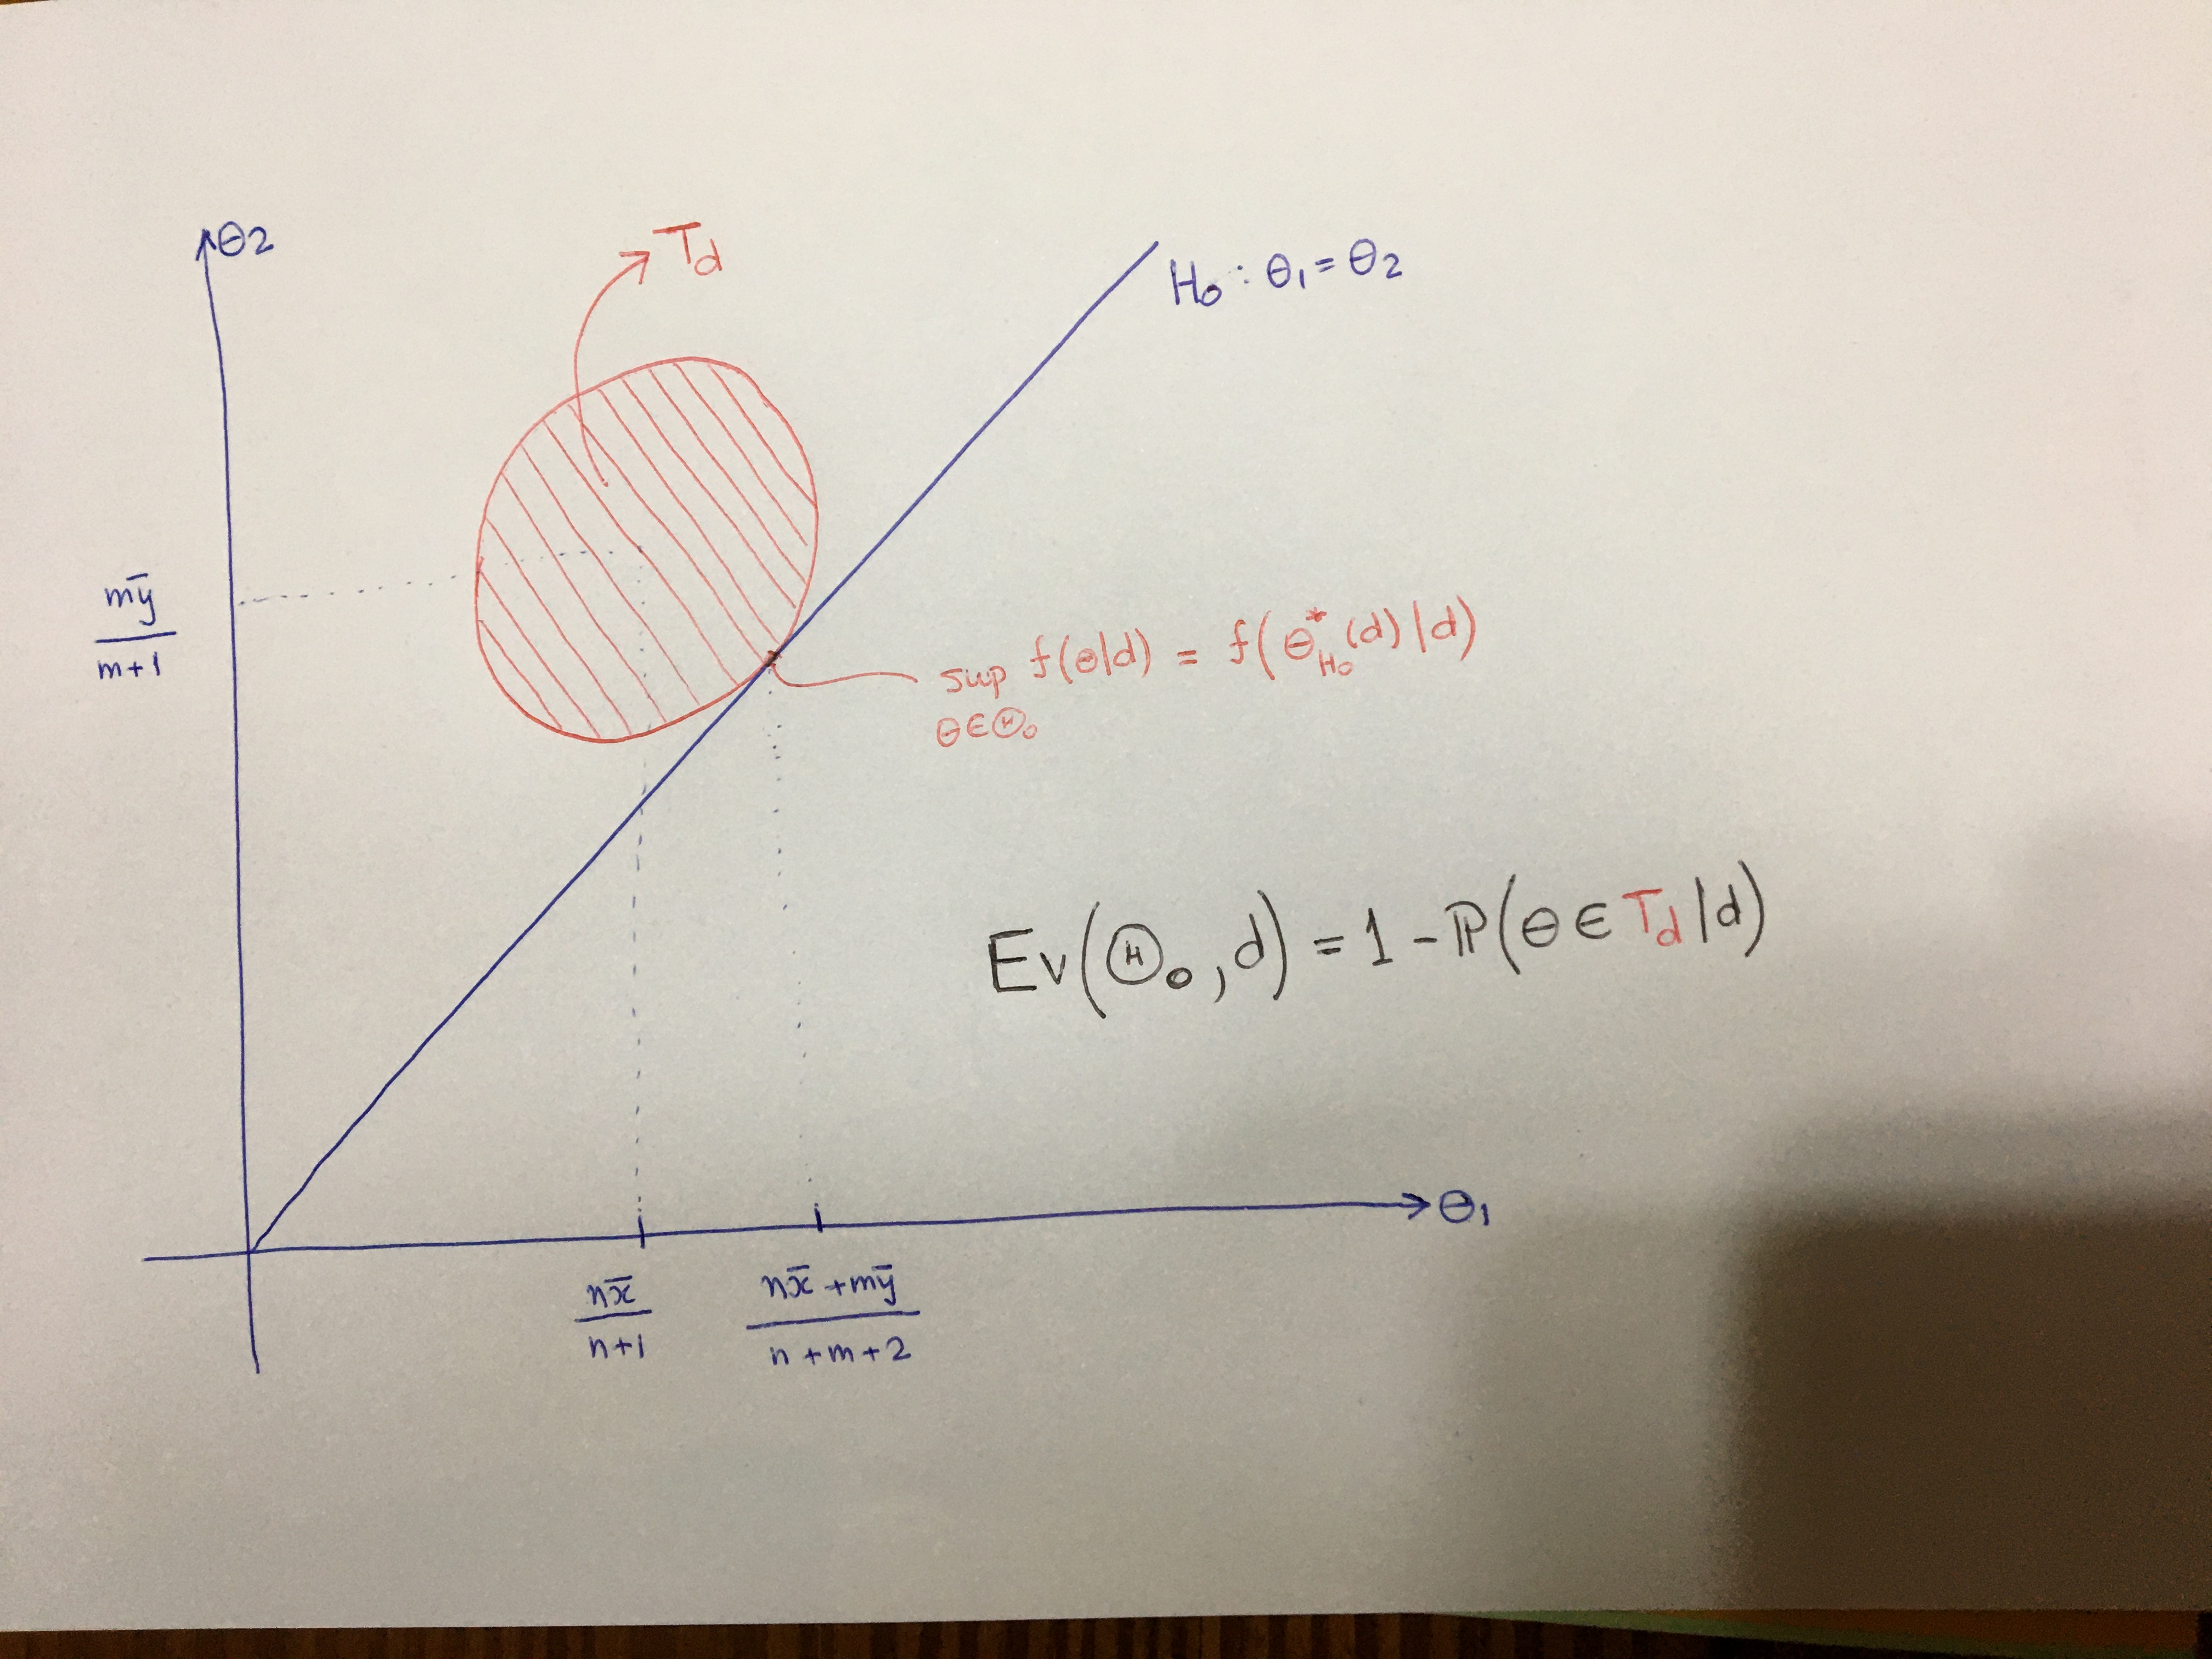 θ2
Td
H₀ : θ₁ = θ₂
mȳ
m+1
sup f(θ|d) = f(θ*H₀(d)|d)
θ∈Θ₀
Ev(Θ₀, d) = 1 - ℙ(θ ∈ Td|d)
θ₁
nx̄
n+1
nx̄ + mȳ
n + m + 2